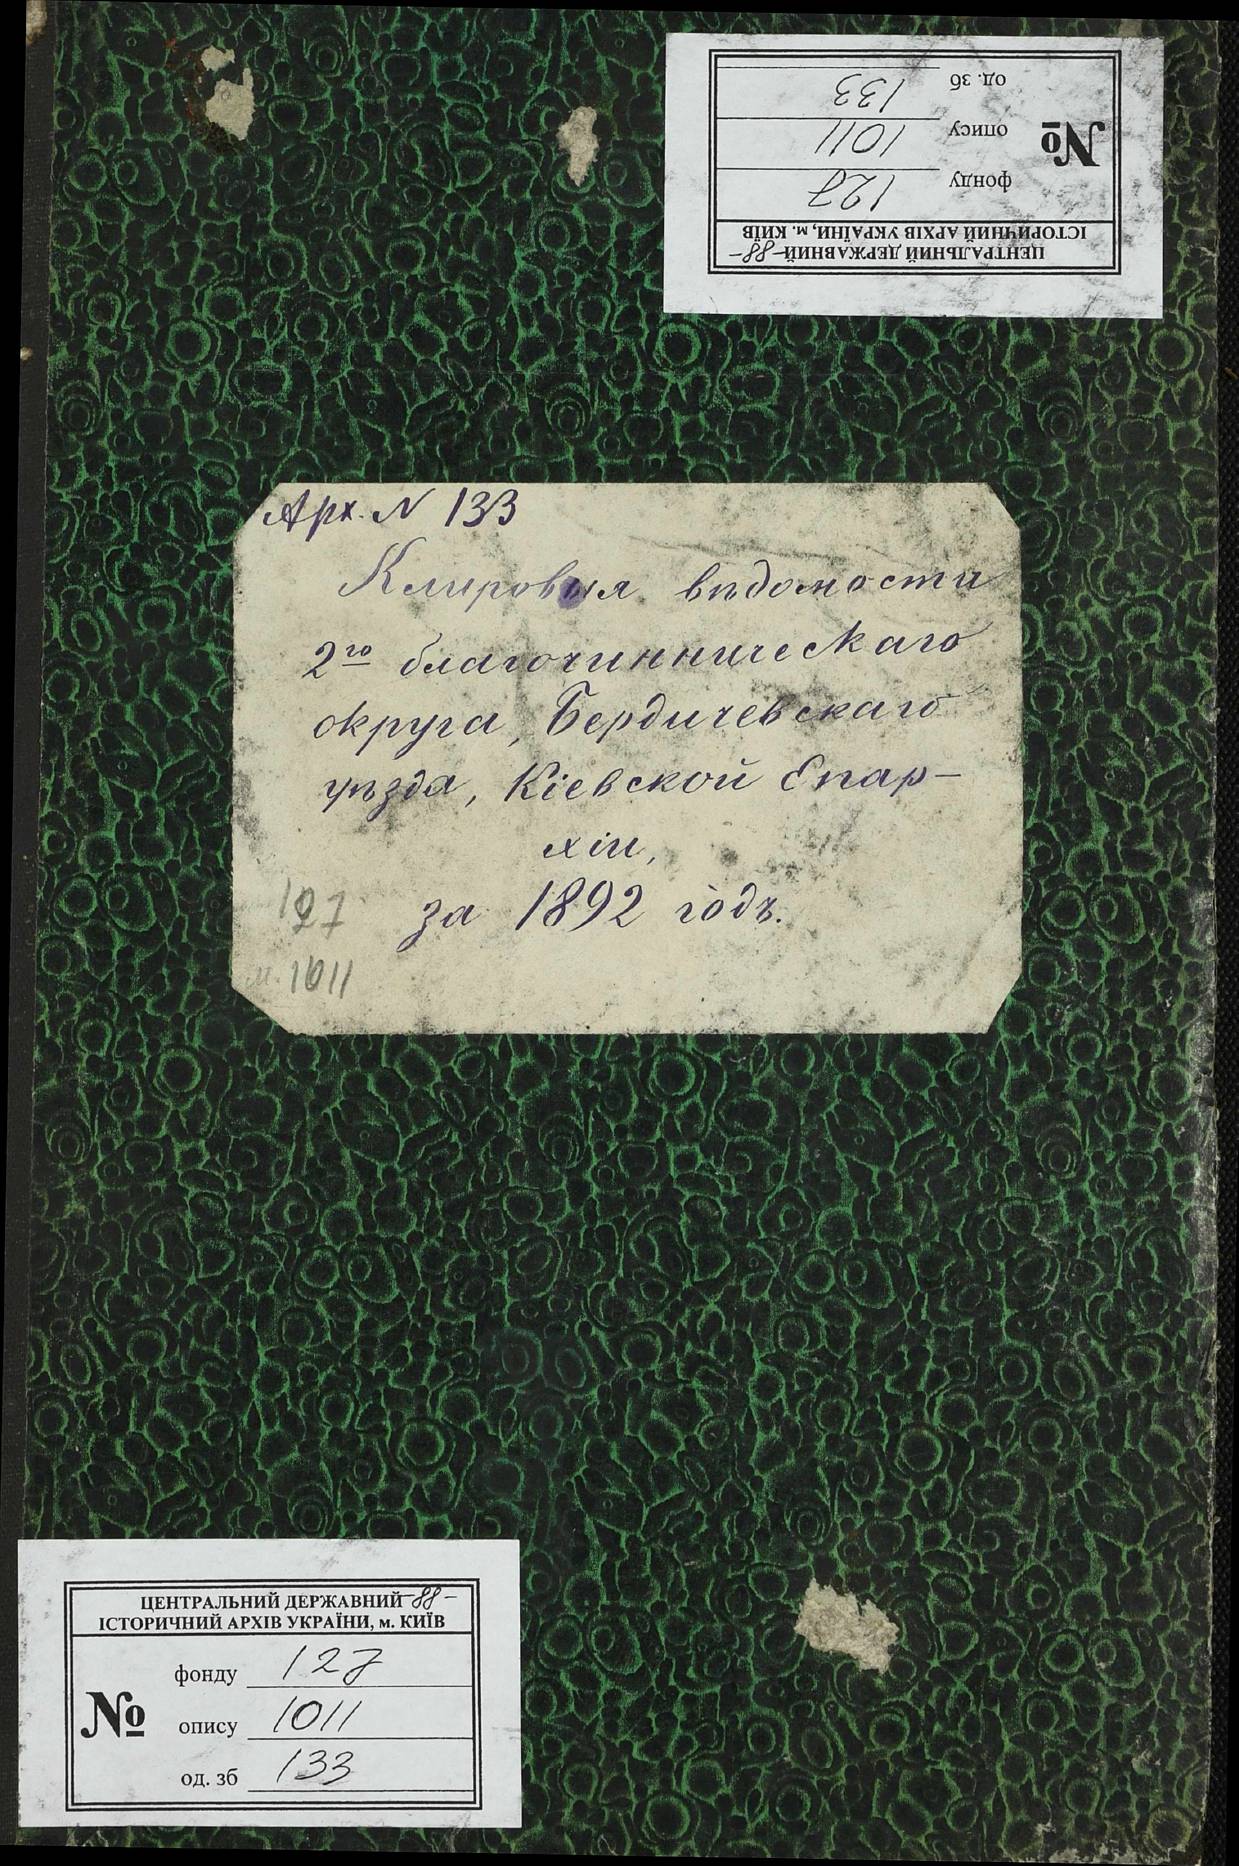 ЦЕНТРАЛЬНИЙ ДЕРЖАВНИЙ -88-
ІСТОРИЧНИЙ АРХІВ УКРАЇНИ, м. КИЇВ
№
фонду 127
опису 1011
од. зб 133
Арх. N 133
Клировыя вѣдомости
2го благочинническаго
округа, Бердичевскаго
уѣзда, Кіевской Епар-
хіи,
за 1892 годъ.
127
1011
ЦЕНТРАЛЬНИЙ ДЕРЖАВНИЙ -88-
ІСТОРИЧНИЙ АРХІВ УКРАЇНИ, м. КИЇВ
№
фонду 127
опису 1011
од. зб 133